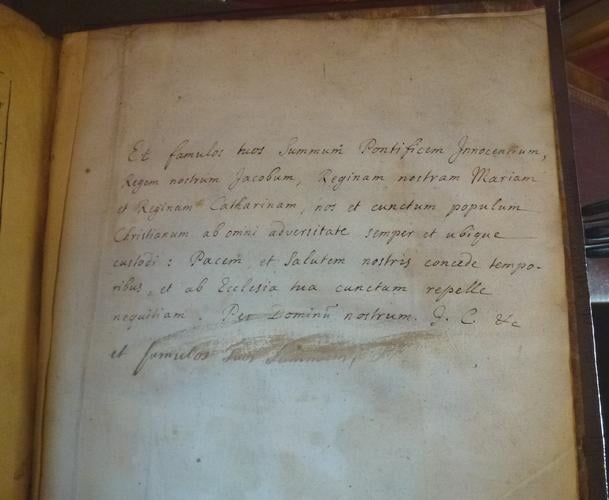 Et famulos tuos Summum̃ Pontificem Innocentium,
Regem nostrum Jacobum, Reginam nostram Mariam
et Reginam Catharinam, nos et cunctum populum
Christianum ab omni adversitate semper et ubique
custodi: Pacem̃, et Salutem nostris concede tempo-
ribus, et ab Ecclesia tua cunctam repelle
nequitiam. Per Dominũ nostrum. J. C. &c
et famulos